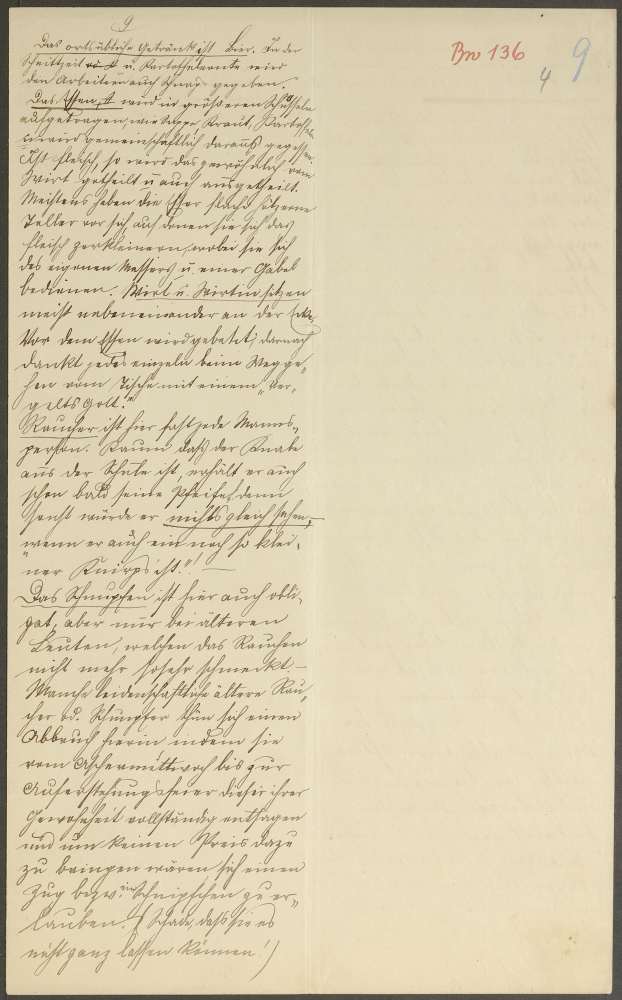 9
Bw 136
4
9
Das ortsübliche Getränk ist Bier. In der
Schnittzeit u. Kartoffelernte wird
den Arbeitern auch Schnaps gegeben.
Das Essen, wird in größeren Schüsseln
aufgetragen, wie Suppe, Kraut, Kartoffel
wird gemeinschaftlich daraus gegessen.
Ist Fleisch, so wird das gewöhnlich vom
Wirt getheilt u auch ausgetheilt.
Meistens haben die Esser flache hölzerne
Teller vor sich, auf denen sie sich das
Fleisch zerkleinern, wobei sie sich
des eigenen Messers u. einer Gabel
bedienen. Wirt u. Wirtin sitzen
meist nebeneinander an der Ecke.
Vor dem Essen wird gebetet, darnach
dankt jedes einzeln beim Wegge-
hen vom Tische mit einem „Ver-
gelts Gott."
Raucher ist hier fast jede Manns-
person. Kaum daß der Knabe
aus der Schule ist, erhält er auch
schon bald seine Pfeife, denn
sonst würde er nichts gleich sehen,
„wenn er auch ein noch so klei-
ner Knirps ist."!
Das Schnupfen ist hier auch obli-
gat, aber nur bei älteren
Leuten, welchen das Rauchen
nicht mehr so sehr schmeckt –
Manche leidenschaftliche ältere Rau-
cher od. Schnupfer thun sich einen
Abbruch hierin indem sie
vom Aschermittwoch bis zur
Auferstehungsfeier dieser ihrer
Gewohnheit vollständig entsagen
und um keinen Preis dazu
zu bringen wären sich einen
Zug bezw. ein Schnüpfchen zu er-
lauben. (Schade, daß sie es
nicht ganz lassen können!)